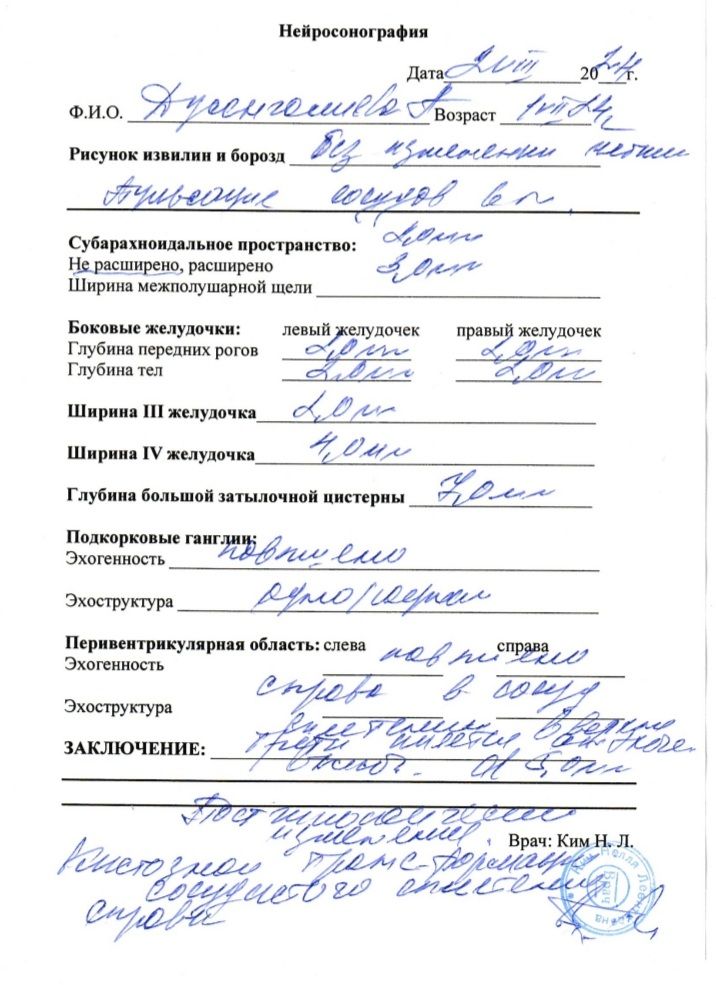 Нейросонография
Дата 2 VIII 2024 г.
Ф.И.О. Возраст
Рисунок извилин и борозд без изменений четкий
Пульсация сосудов в п.
Субарахноидальное пространство: 2,0 мм
Не расширено, расширено 3,0 мм
Ширина межполушарной щели
Боковые желудочки: левый желудочек правый желудочек
Глубина передних рогов 2,0 мм 2,0 мм
Глубина тел 2,0 мм 2,0 мм
Ширина III желудочка 2,0 мм
Ширина IV желудочка 4,0 мм
Глубина большой затылочной цистерны 7,0 мм
Подкорковые ганглии:
Эхогенность повышено
Эхоструктура
Перивентрикулярная область: слева справа
Эхогенность повышено
справа в сосуд
Эхоструктура
сплетении в верхней
ЗАКЛЮЧЕНИЕ: трети имеется
5,0 мм
Постгипоксические
изменения.
Врач: Ким Н. Л.
Кистозной трансформации
сосудистого сплетения
справа